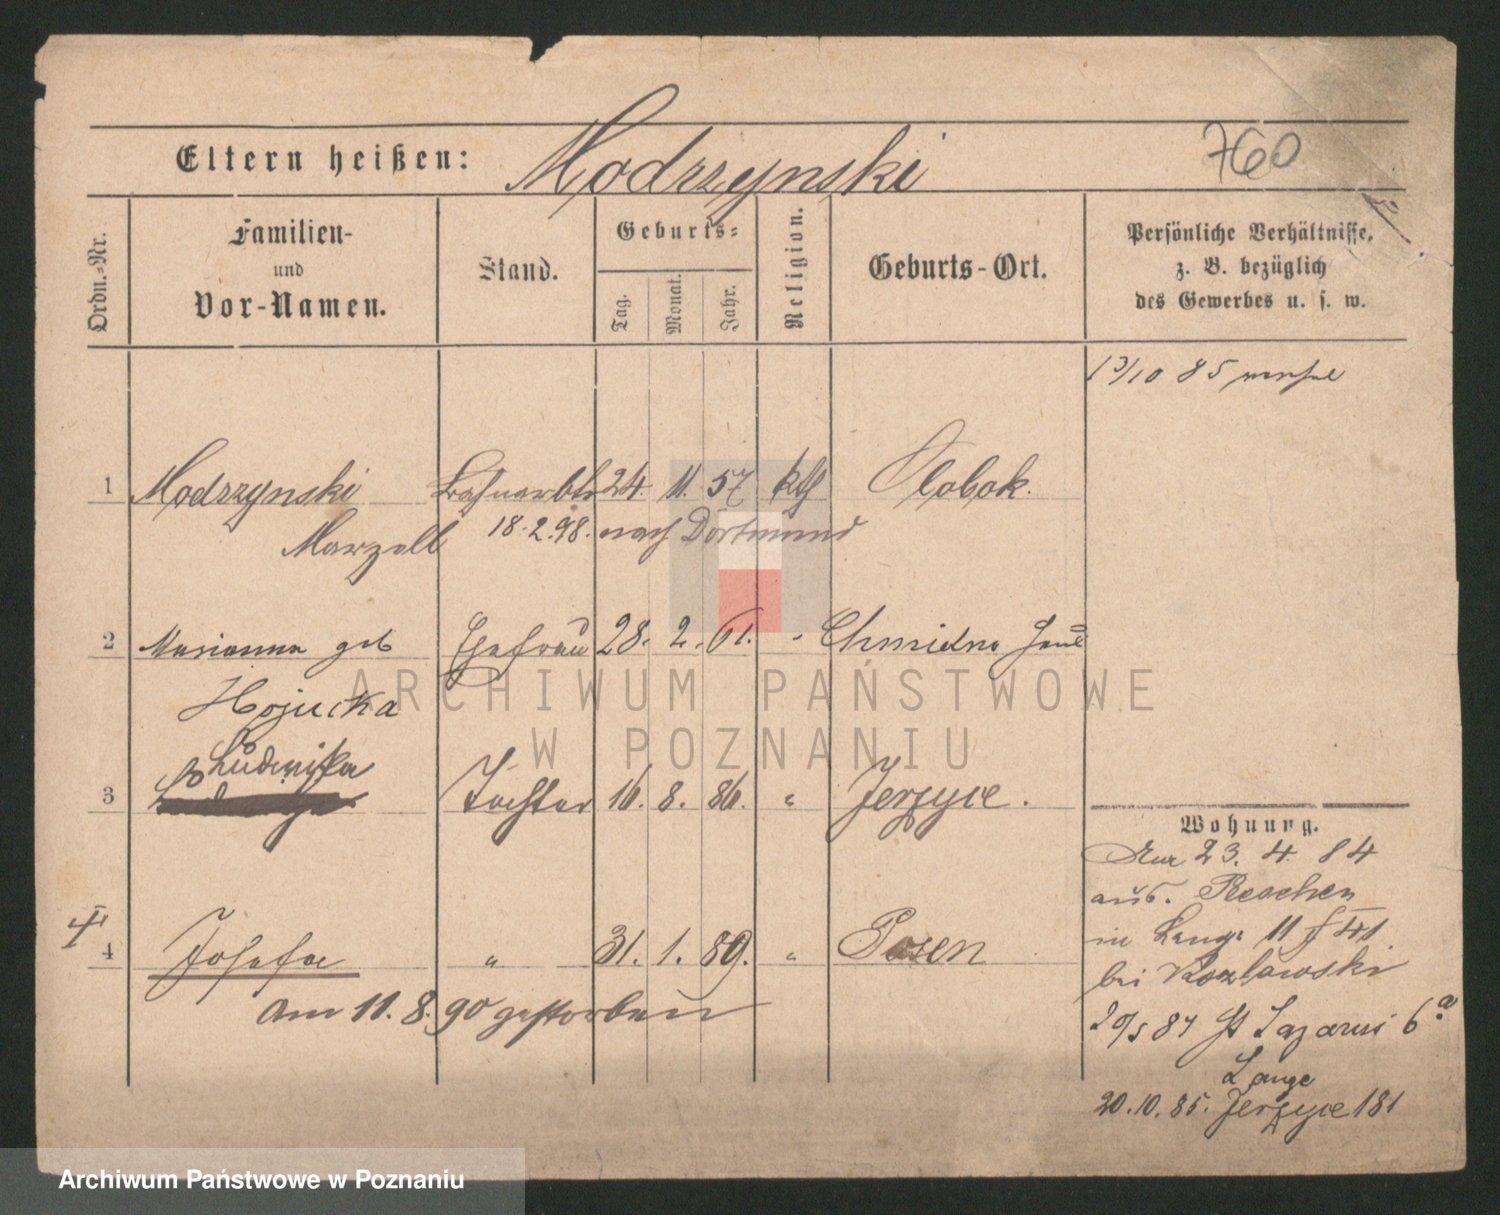 760
Eltern heißen: Modrzynski
Ordn.-Nr.
Familien-
und
Vor-Namen.
Stand.
Geburts-
Tag.
Monat.
Jahr.
Religion.
Geburts-Ort.
Persönliche Verhältnisse,
z. B. bezüglich
des Gewerbes u. s. w.
13/10 85
1 Modrzynski 24. 11. 57 kth Olobok.
Marzell 18.2.98. nach Dortmund
2 Marianna geb Ehefrau 28. 2. 61. "
Hojucka
Ludwika
3 Tochter 16. 8. 86. " Jerzyce.
4 Josefa " 31. 1. 89. " Posen
am 11.8.90 gestorben
Wohnung.
23. 4. 84
aus.
in
bei Kozlowski
St Lazarus 6a
Lange
20.10.85. Jerzyce 181
ARCHIWUM PAŃSTWOWE
W POZNANIU
Archiwum Państwowe w Poznaniu